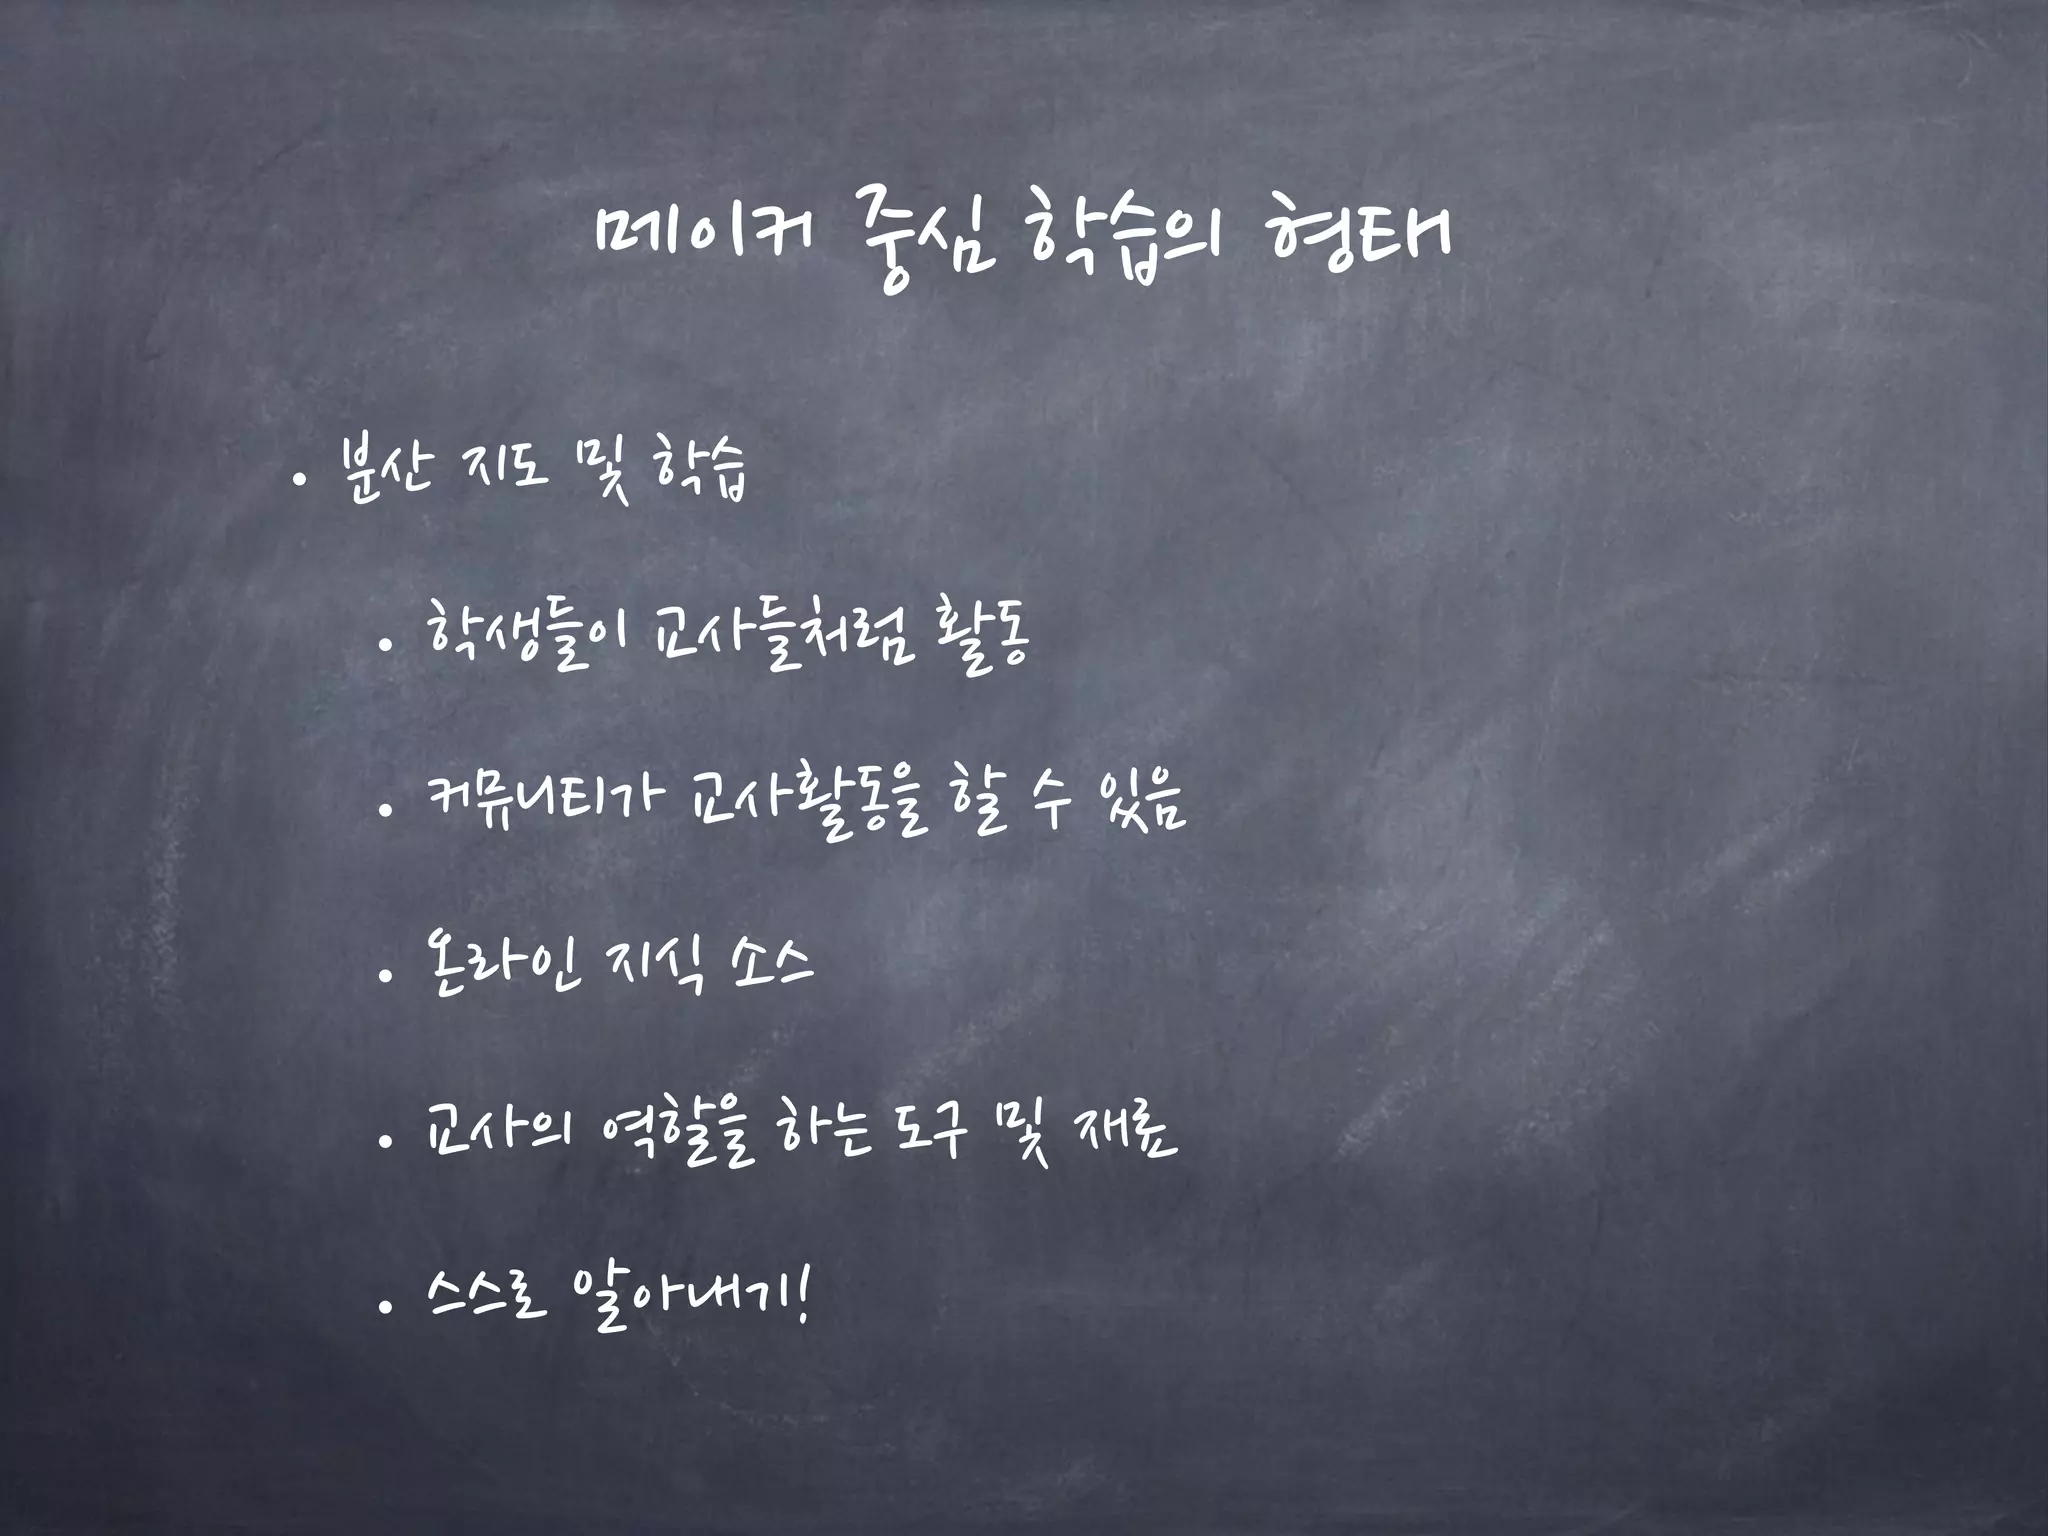 메이커 중심 학습의 형태
• 분산 지도 및 학습
• 학생들이 교사들처럼 활동
• 커뮤니티가 교사활동을 할 수 있음
• 온라인 지식 소스
• 교사의 역할을 하는 도구 및 재료
• 스스로 알아내기!